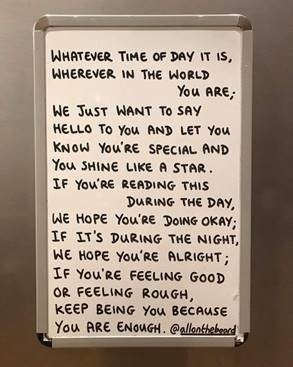 WHATEVER TIME OF DAY IT IS,
WHEREVER IN THE WORLD
YOU ARE;
WE JUST WANT TO SAY
HELLO TO YOU AND LET YOU
KNOW YOU'RE SPECIAL AND
YOU SHINE LIKE A STAR.
IF YOU'RE READING THIS
DURING THE DAY,
WE HOPE YOU'RE DOING OKAY;
IF IT'S DURING THE NIGHT,
WE HOPE YOU'RE ALRIGHT;
IF YOU'RE FEELING GOOD
OR FEELING ROUGH,
KEEP BEING YOU BECAUSE
YOU ARE ENOUGH. @allontheboard